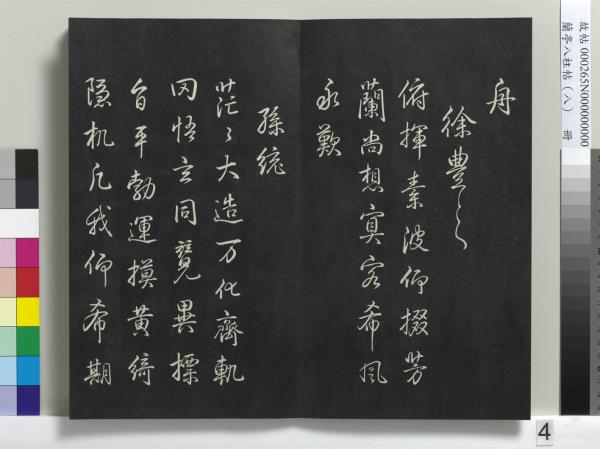 舟
徐豐之
俯揮素波仰掇芳
蘭尚想冥客希風
永歎
孫統
茫〻大造万化齊軌
罔悟玄同競異摽
旨平勃運摸黃綺
隱机凡我仰希期
故帖 000265N000000000
蘭亭八柱帖(八) 冊
4